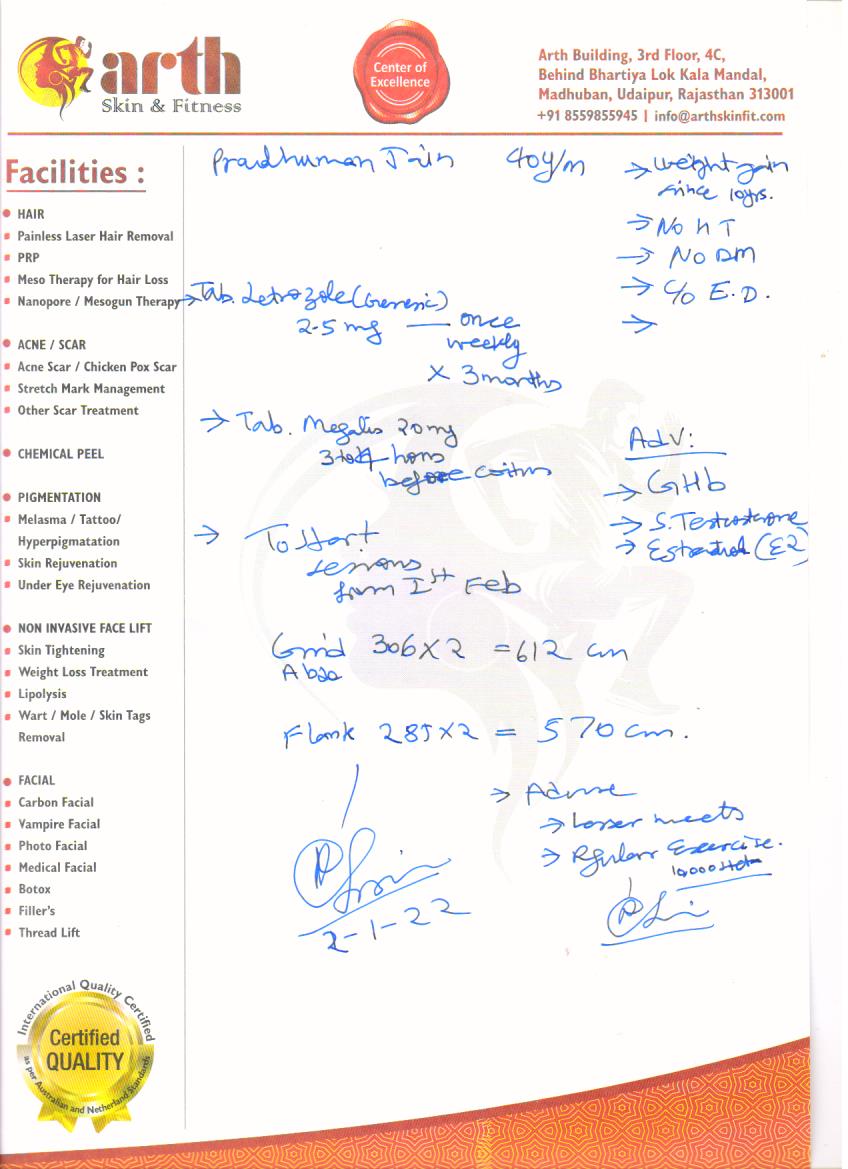 arth
Skin & Fitness
Center of
Excellence
Arth Building, 3rd Floor, 4C,
Behind Bhartiya Lok Kala Mandal,
Madhuban, Udaipur, Rajasthan 313001
+91 8559855945 | info@arthskinfit.com
Facilities :
HAIR
Painless Laser Hair Removal
PRP
Meso Therapy for Hair Loss
Nanopore / Mesogun Therapy
ACNE / SCAR
Acne Scar / Chicken Pox Scar
Stretch Mark Management
Other Scar Treatment
CHEMICAL PEEL
PIGMENTATION
Melasma / Tattoo/
Hyperpigmatation
Skin Rejuvenation
Under Eye Rejuvenation
NON INVASIVE FACE LIFT
Skin Tightening
Weight Loss Treatment
Lipolysis
Wart / Mole / Skin Tags
Removal
FACIAL
Carbon Facial
Vampire Facial
Photo Facial
Medical Facial
Botox
Filler's
Thread Lift
International Quality Certified
Certified
QUALITY
as per Australian and Netherland Standards
Pradhuman Jain 40y/m
→ weight gain
since 10yrs.
→ No HT
→ No DM
→ c/o E.D.
→
→ Tab. Letrozole (Generic)
2.5 mg — once
weekly
x 3 months
→ Tab. Megalis 20mg
3 to 4 hours
before coitus
→ To start
sessions
from Ist Feb
Adv:
→ GHb
→ S. Testosterone
→ Estradiol (E2)
306 x 2 = 612 cm
Flank 285 x 2 = 570 cm.
→ Advise
→
→ Regular Exercise.
10,000
2-1-22